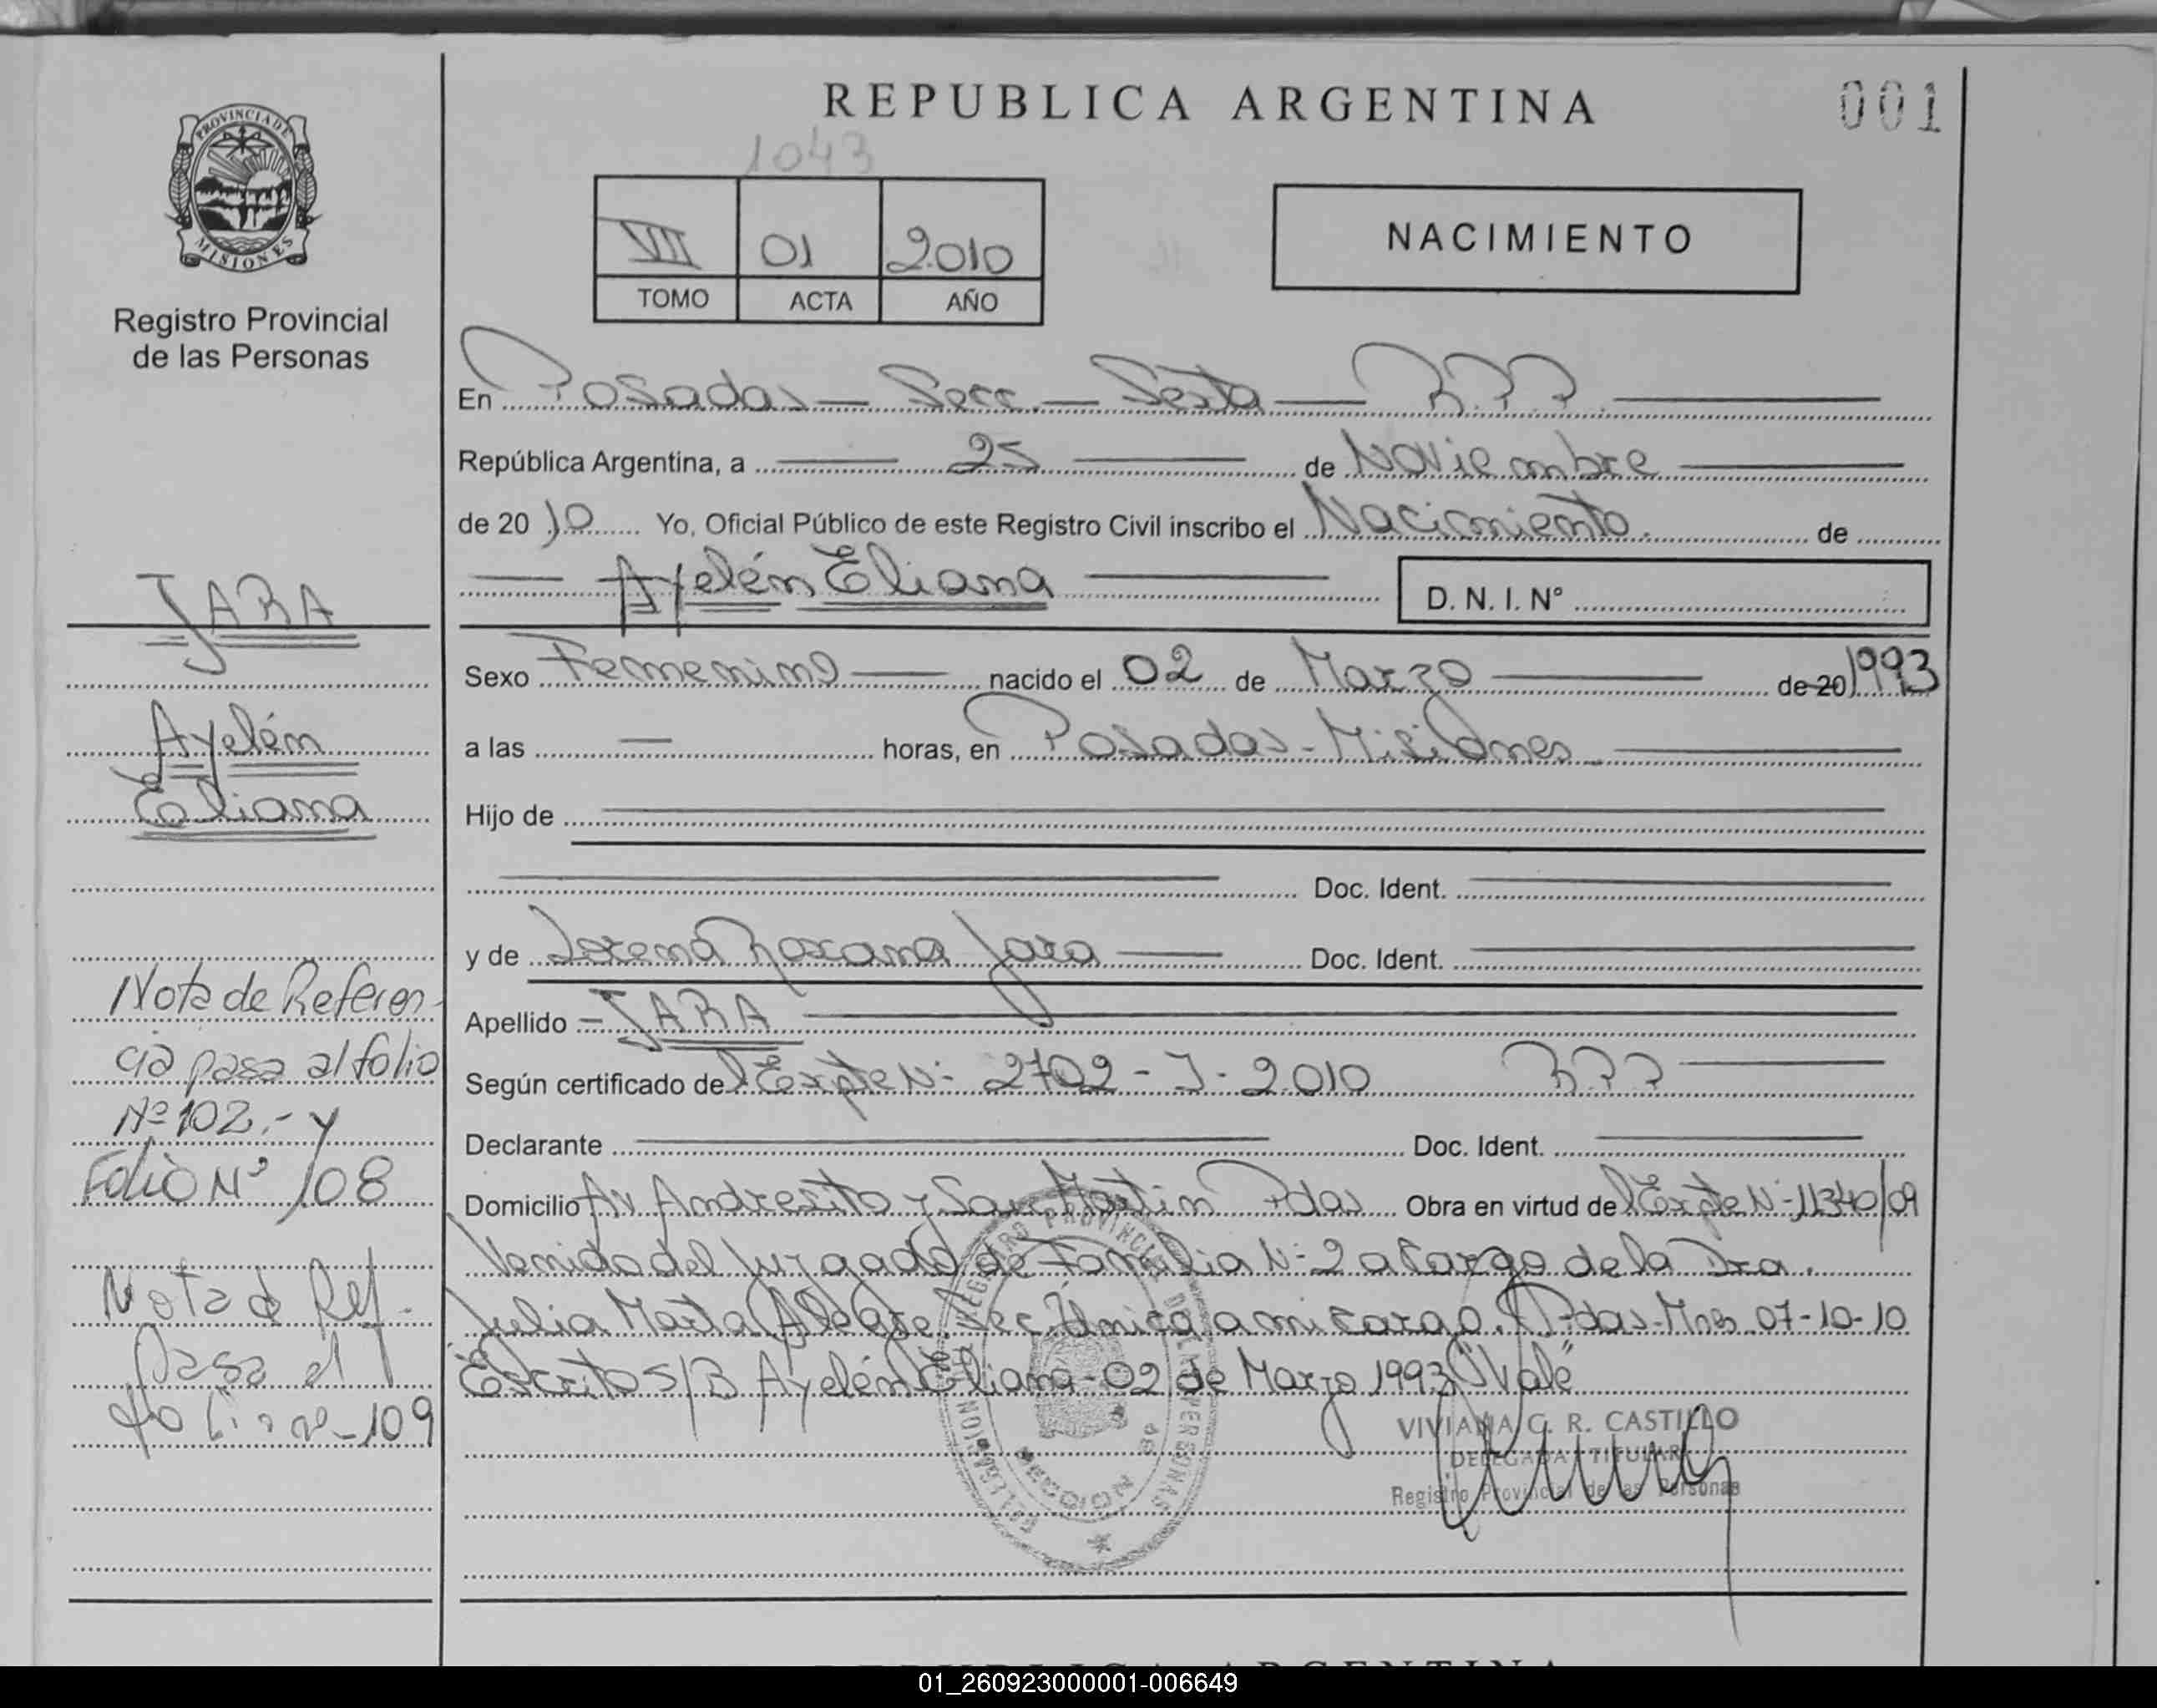 REPUBLICA ARGENTINA
001
1043
PROVINCIA DE
MISIONES
VII 01 2010
TOMO ACTA AÑO
NACIMIENTO
Registro Provincial
de las Personas
En Posadas - Secc. - Sexta - R.P.P.
República Argentina, a 25 de Noviembre
de 2010 Yo, Oficial Público de este Registro Civil inscribo el Nacimiento. de
Ayelén Eliana D. N. I. N°
JARA
Ayelén
Eliana
Sexo Femenino nacido el 02 de Marzo de 20 1993
a las — horas, en Posadas - Misiones
Hijo de
Doc. Ident.
y de Lorena Roxana Jara Doc. Ident.
Apellido - JARA
Según certificado de Expte N: 2702 - J - 2010 R.P.P.
Declarante Doc. Ident.
Domicilio Av Andresito y San Martin Pdas Obra en virtud de Expte N: 11340/09
Venido del Juzgado de Familia N: 2 a Cargo de la Dra.
Julia Marta Alegre. Sec. Única a mi cargo. Pdas - Mnes. 07-10-10
Escrito S/B Ayelén Eliana - 02 de Marzo 1993 "Vale"
Nota de Referen-
cia pasa al folio
Nº 102.- y
Folio Nº 108
Nota de Ref.
Pasa al
folio nº - 109
VIVIANA G. R. CASTILLO
DELEGADA TITULAR
Registro Provincial de las Personas
REGISTRO PROVINCIAL DE LAS PERSONAS
SECCION 6ª
REPUBLICA ARGENTINA
01_260923000001-006649